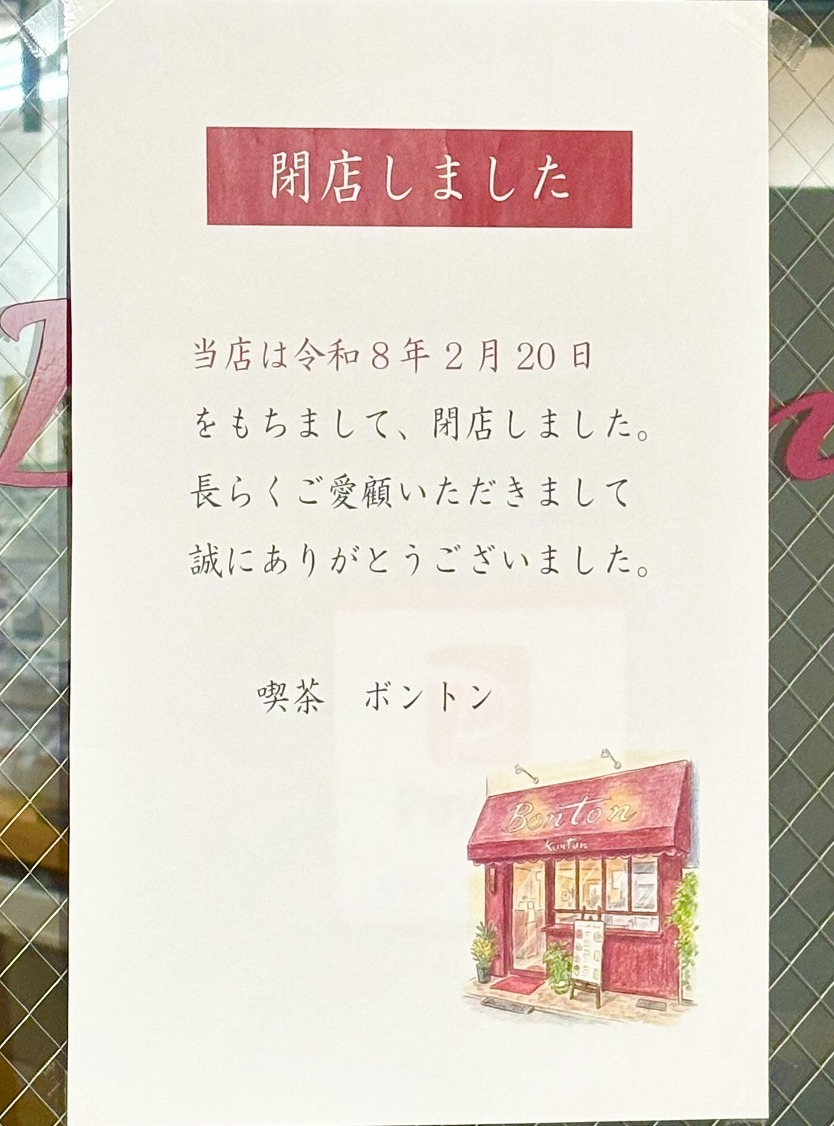 閉店しました
当店は令和8年2月20日
をもちまして、閉店しました。
長らくご愛顧いただきまして
誠にありがとうございました。
喫茶　ボントン
Bonton